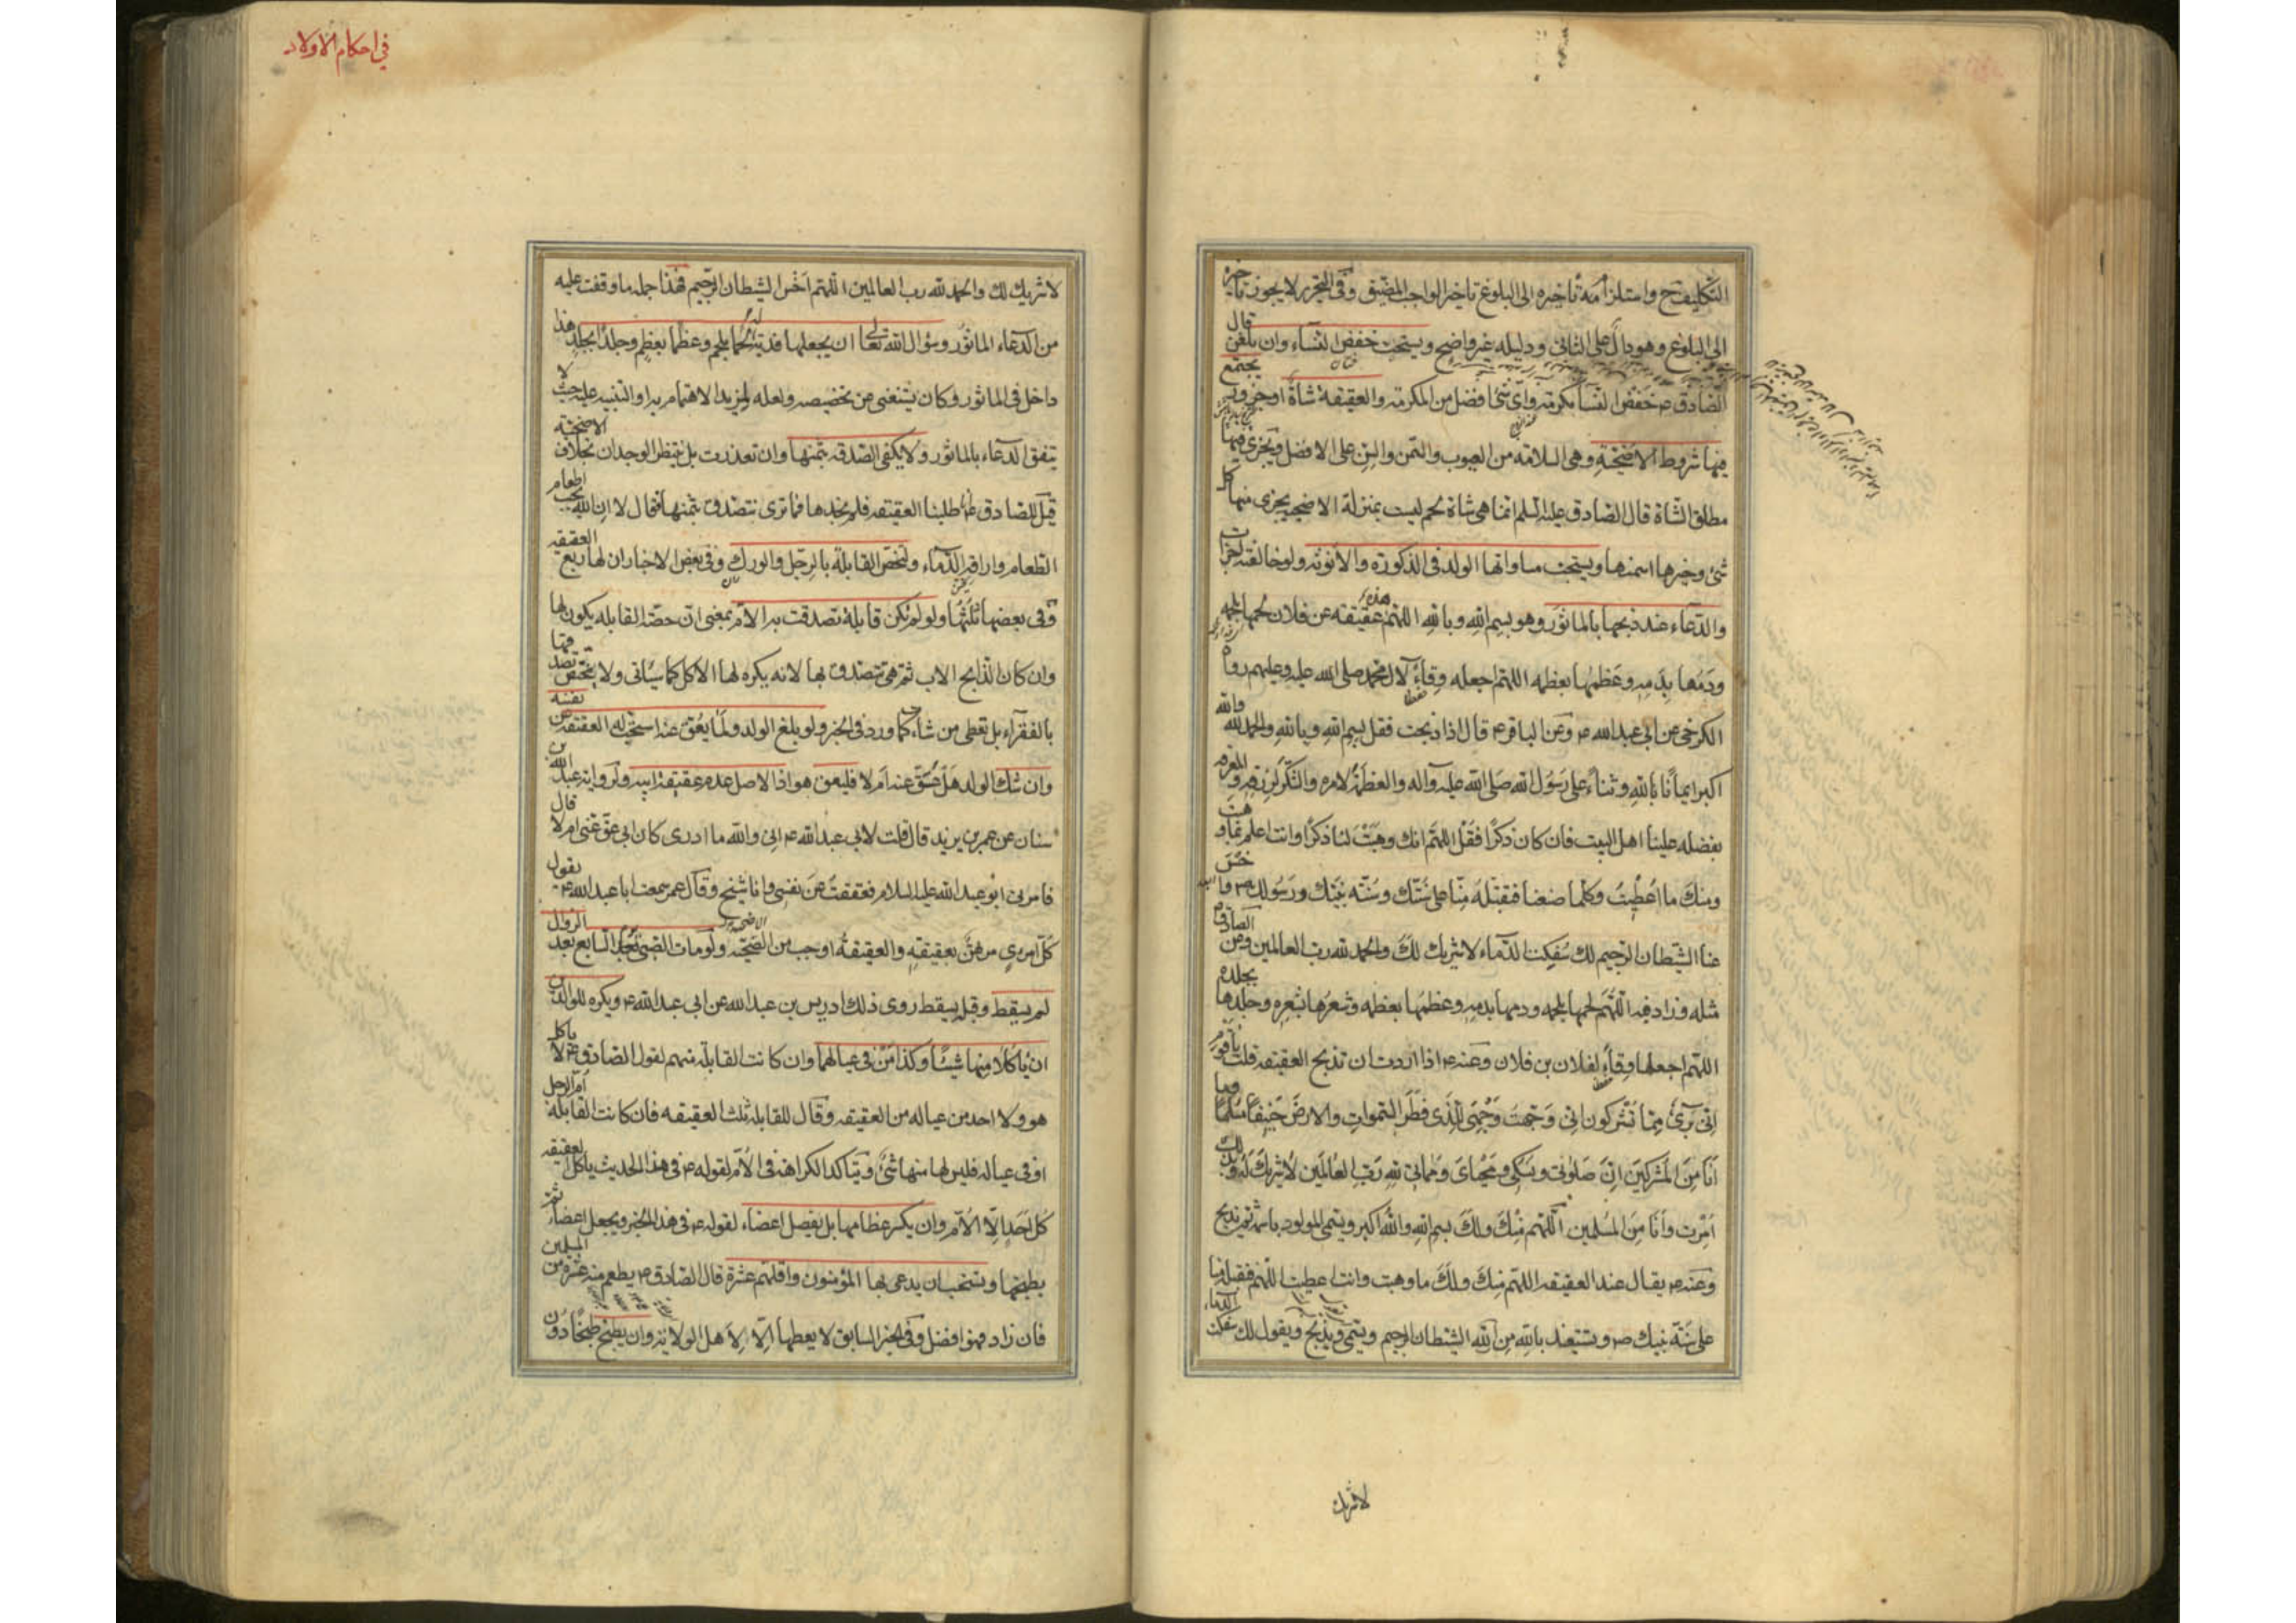 التكليف ح واستلزامه تأخيره إلى البلوغ تأخير الواجب المضيق وفي التحرير لا يجوز تأخيره
إلى البلوغ وهو دال على الثاني ودليله غير واضح ويستحب خفض النساء وإن بلغن قال
الصادق ع خفض النساء مكرمة وأي شيء أفضل من المكرمة والعقيقة شاة أو جزور يجتمع
فيها شروط الأضحية وهي السلامة من العيوب والسمن والسن على الأفضل ويجزي فيها
مطلق الشاة قال الصادق عليه السلم إنما هي شاة لحم ليست بمنزلة الأضحية يجزي منها كل
شئ وخيرها أسمنها ويستحب مساواتها الولد في الذكورة والأنوثة ولو خالفته أجزأت
والدعاء عند ذبحها بالمأثور وهو بسم الله وبالله اللهم هذه عقيقة عن فلان لحمها بلحمه
ودمها بدمه وعظمها بعظمه اللهم اجعله وقاء لآل محمد صلى الله عليه وعليهم رواه
الكرخي عن أبي عبد الله ع وعن الباقر ع قال إذا ذبحت فقل بسم الله وبالله والحمد لله والله
أكبر إيمانا بالله وثناء على رسول الله صلى الله عليه وآله والعظمة لأمره والشكر لرزقه والمعرفة
بفضله علينا أهل البيت فإن كان ذكرا فقل اللهم إنك وهبت لنا ذكرا وأنت أعلم بما وهبت
ومنك ما أعطيت وكلما صنعنا فتقبله منا على سنتك وسنة نبيك ورسولك ص فاخسئ
عنا الشيطان الرجيم لك سفكت الدماء لا شريك لك والحمد لله رب العالمين وعن الصادق
مثله وزاد فيه اللهم لحمها بلحمه ودمها بدمه وعظمها بعظمه وشعرها بشعره وجلدها بجلده
اللهم اجعلها وقاء لفلان بن فلان وعنه ع إذا أردت أن تذبح العقيقة قلت يا قوم
إني بريء مما تشركون إني وجهت وجهي للذي فطر السموات والأرض حنيفا مسلما وما
أنا من المشركين إن صلوتي ونسكي ومحياي ومماتي لله رب العالمين لا شريك له وبذلك
أمرت وأنا من المسلمين اللهم منك ولك بسم الله والله أكبر ويسمي المولود باسمه ثم يذبح
وعنه ع يقال عند العقيقة اللهم منك ولك ما وهبت وأنت أعطيت اللهم فتقبله منا
على سنة نبيك ص ويستعيذ بالله من الشيطان الرجيم ويسمي ويذبح ويقول لك سفكت الدماء
لا شريك
في أحكام الأولاد
لا شريك لك والحمد لله رب العالمين اللهم اخس الشيطان الرجيم فهذا جملة ما وقفت عليه
من الدعاء المأثور وسؤال الله تعالى أن يجعلها فدية له لحما بلحم وعظما بعظم وجلدا بجلد هذا
داخل في المأثور وكان يستغنى عن تخصيصه ولعله لمزيد الاهتمام به أو التنبيه عليه حيث لا
يتفق الدعاء بالمأثور ولا يكفي الصدقة بثمنها وإن تعذرت بل ينتظر الوجدان بخلاف الأضحية
قيل للصادق ع أطلبنا العقيقة فلم نجدها فما ترى نتصدق بثمنها فقال لا إن الله يحب إطعام
الطعام وإراقة الدماء ولتخص القابلة بالرجل والورك وفي بعض الأخبار أن لها ربع العقيقة
وفي بعضها ثلثها ولو لم تكن قابلة تصدقت به الأم بمعنى أن حصة القابلة يكون لها
وإن كان الذابح الأب ثم هي تتصدق بها لأنه يكره لها الأكل كما سيأتي ولا يختص تصدقها
بالفقراء بل تعطي من شاءت كما ورد في الخبر ولو بلغ الولد ولما يعق عنه استحب له العقيقة عن نفسه
وإن شك الولد هل عق عنه أم لا فليعق هو إذ الأصل عدم عقيقة أبيه ولرواية عبد الله بن
سنان عن عمر بن يزيد قال قلت لأبي عبد الله ع إني والله ما أدري كان أبي عق عني أم لا قال
فأمرني أبو عبد الله عليه السلام فعققت عن نفسي وأنا شيخ وقال عمر سمعت أبا عبد الله ع يقول
كل امرئ مرتهن بعقيقته والعقيقة أوجب من الأضحية ولو مات الصبي يوم السابع بعد الزوال
لم يسقط وقبله يسقط روى ذلك إدريس بن عبد الله عن أبي عبد الله ع ويكره للوالدين
أن يأكلا منها شيئا وكذا من في عيالهما وإن كانت القابلة منهم لقول الصادق ع لا يأكل
هو ولا أحد من عياله من العقيقة وقال للقابلة ثلث العقيقة فإن كانت القابلة أم الرجل
أو في عياله فليس لها منها شئ وتتأكد الكراهة في الأم لقوله ع في هذا الحديث يأكل العقيقة
كل أحد إلا الأم وأن يكسر عظامها بل يفصل أعضاء لقوله ع في هذا الخبر ويجعل أعضاء ثم
يطبخها ويستحب أن يدعى لها المؤمنون وأقلهم عشرة قال الصادق ع يطعم منه عشرة من المسلمين
فإن زاد فهو أفضل وفي الخبر السابق لا يعطيها إلا لأهل الولاية وأن يطبخ طبخا دون